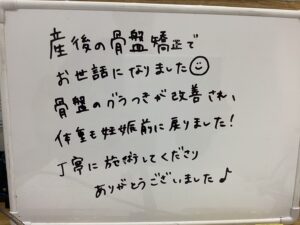 産後の骨盤矯正で
お世話になりました☺
骨盤のグラつきが改善され、
体重も妊娠前に戻りました！
丁寧に施術してくださり
ありがとうございました♪